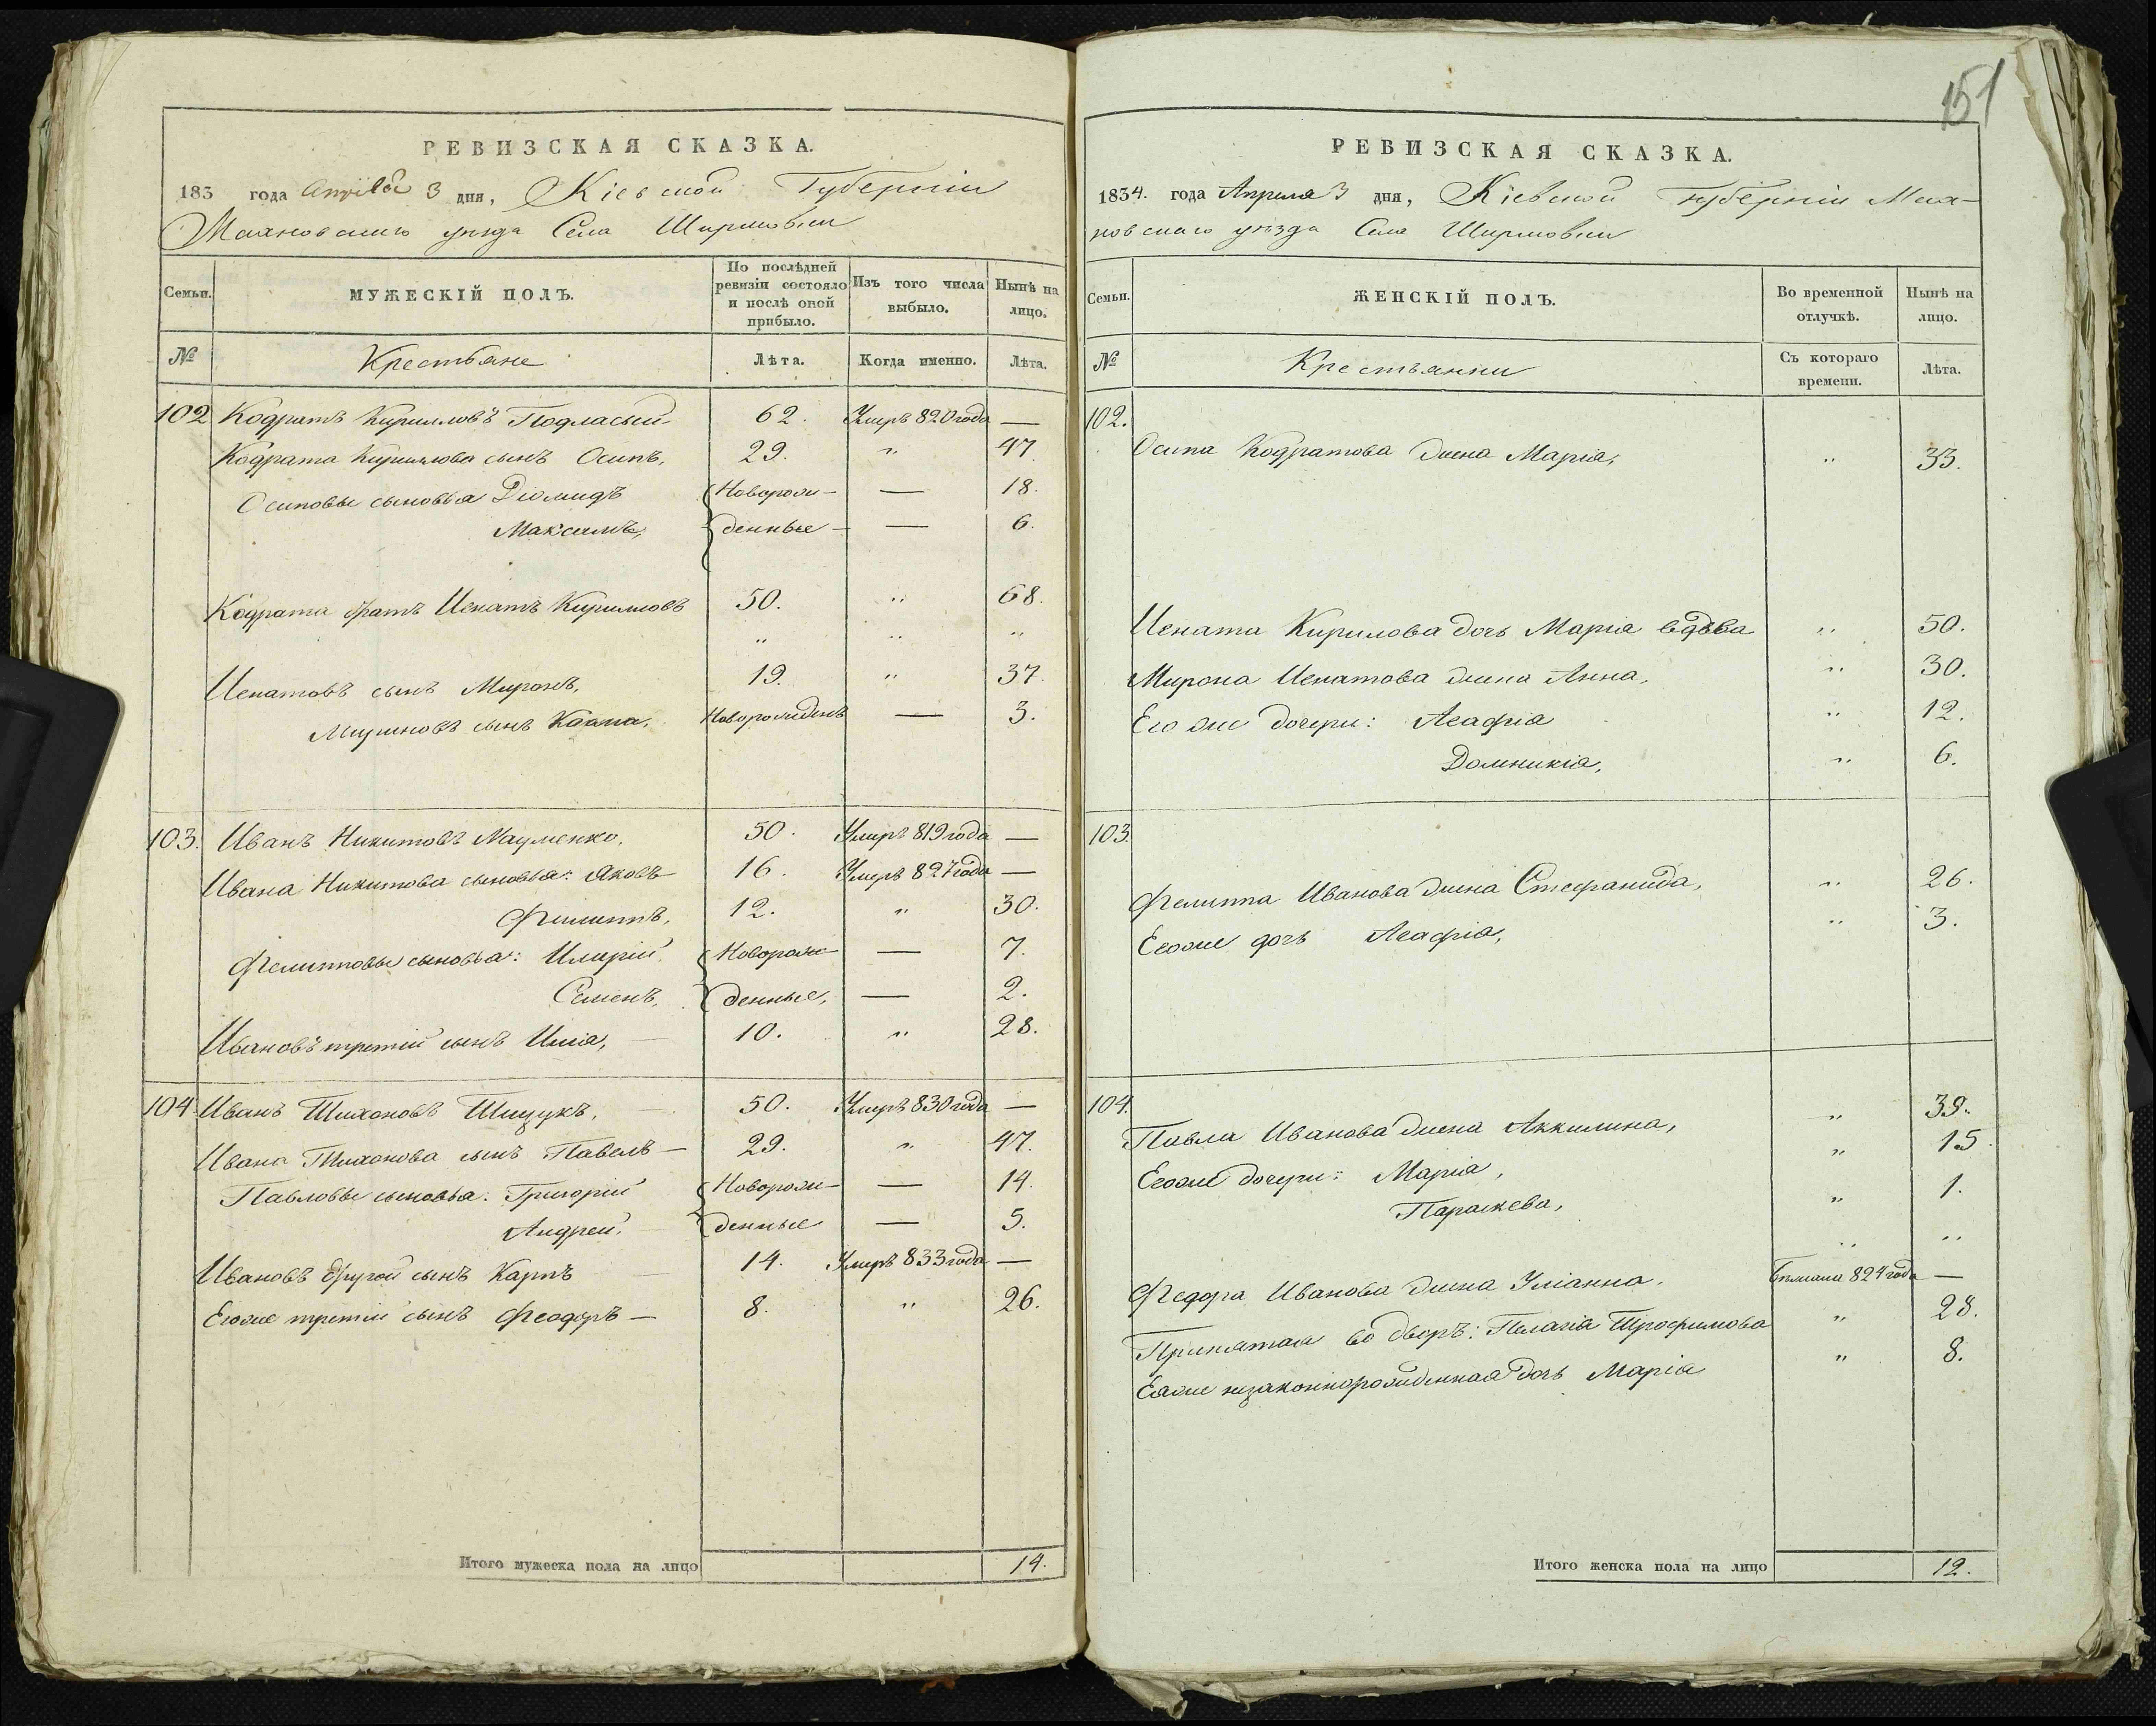 РЕВИЗСКАЯ СКАЗКА.
183 года Апрѣля 3 дня, Кіевской Губерніи
уѣзда Села Ширмовки
Семьи.
МУЖЕСКІЙ ПОЛЪ.
По послѣдней ревизіи состояло и послѣ оной прибыло.
Изъ того числа выбыло.
Нынѣ на лицо.
№ Крестьяне Лѣта. Когда именно. Лѣта.
102 Кодратъ Кирилловъ Подласый 62. Умеръ 820 года —
Кодрата Кириллова сынъ Осипъ, 29. " 47
Осиповы сыновья Діомидъ Наворож- — 18.
Максимъ, денные — — 6.
Кодрата братъ Игнатъ Кирилловъ 50. " 68.
" " "
Игнатовъ сынъ Миронъ, 19. " 37.
Мироновъ сынъ Косма, Новорожденъ — 3.
103. Иванъ Никитовъ Науменко, 50. Умеръ 819 года —
Ивана Никитова сыновья: Яковъ 16. Умеръ 827 года —
Филиппъ, 12. " 30.
Филипповы сыновья: Новорож — 7.
Семенъ, денные, — 2.
Ивановъ третій сынъ Илія, 10. " 28.
104 Иванъ Тихоновъ 50. Умеръ 830 года —
Ивана Тихонова сынъ Павелъ — 29. " 47.
Павловы сыновья: Григорій Новорож — 14.
Андрей, денные — 5.
Ивановъ другой сынъ Карпъ 14. Умеръ 833 года —
Егоже третій сынъ Феодоръ — 8. " 26.
Итого мужеска пола на лицо 14.
151
РЕВИЗСКАЯ СКАЗКА.
1834. года Апреля 3 дня, Кіевской Губерніи Мах-
новскаго уѣзда Села Ширмовки
Семьи.
ЖЕНСКІЙ ПОЛЪ.
Во временной отлучкѣ.
Нынѣ на лицо.
№ Крестьянки Съ котораго времени. Лѣта.
102.
Осипа Кодратова жена Марія, " 33.
Игната Кирилова дочь Марія вдова " 50.
Мирона Игнатова жена Анна, " 30.
Его же дочери: Агафія " 12.
Домникія, " 6.
103.
Филиппа Иванова жена Стефанида, " 26.
Егоже дочь Агафія, " 3.
104.
Павла Иванова жена Аккилина, " 39.
Егоже дочери: Марія, " 15.
Параскева, " 1.
" "
Федора Иванова жена Уліанна, Бѣжала 824 года —
Принятая во дворъ: Пелагія Трофимова " 28.
Еяже незаконнорожденная дочь Марія " 8.
Итого женска пола на лицо 12.